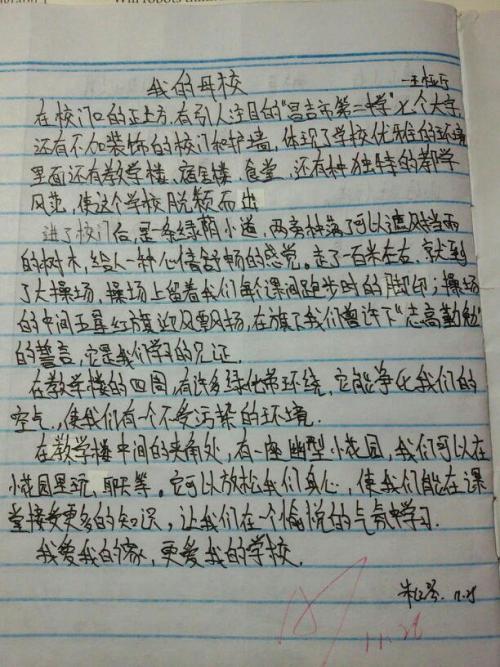 我的母校
在校门口的正上方,有引人注目的"昌吉市第二中学"七个大字,
还有不加装饰的校门和护墙,体现了学校优雅的环境
里面还有教学楼、宿舍楼、食堂、还有种独特的教学
风范,使这个学校脱颖而出
进了校门后,是一条绿荫小道,两旁种满了可以遮风挡雨
的树木,给人一种心情舒畅的感觉。走了一百米左右,就到
了大操场,操场上留着我们每个课间跑步时的脚印;操场
的中间五星红旗迎风飘扬,在旗下我们曾许下"志高勤勉"
的誓言,它是我们学习的见证.
在教学楼的四周,有许多绿化带环绕,它能争化我们的
空气,使我们有一个不受污染的环境.
在教学楼中间的夹角处,有一座幽型小花园,我们可以在
小花园里玩、聊天等。它可以放松我们身心,使我们能在课
堂接受更多的知识,让我们在一个愉悦的气氛中学习.
我爱我的家,更爱我的学校.
11.28